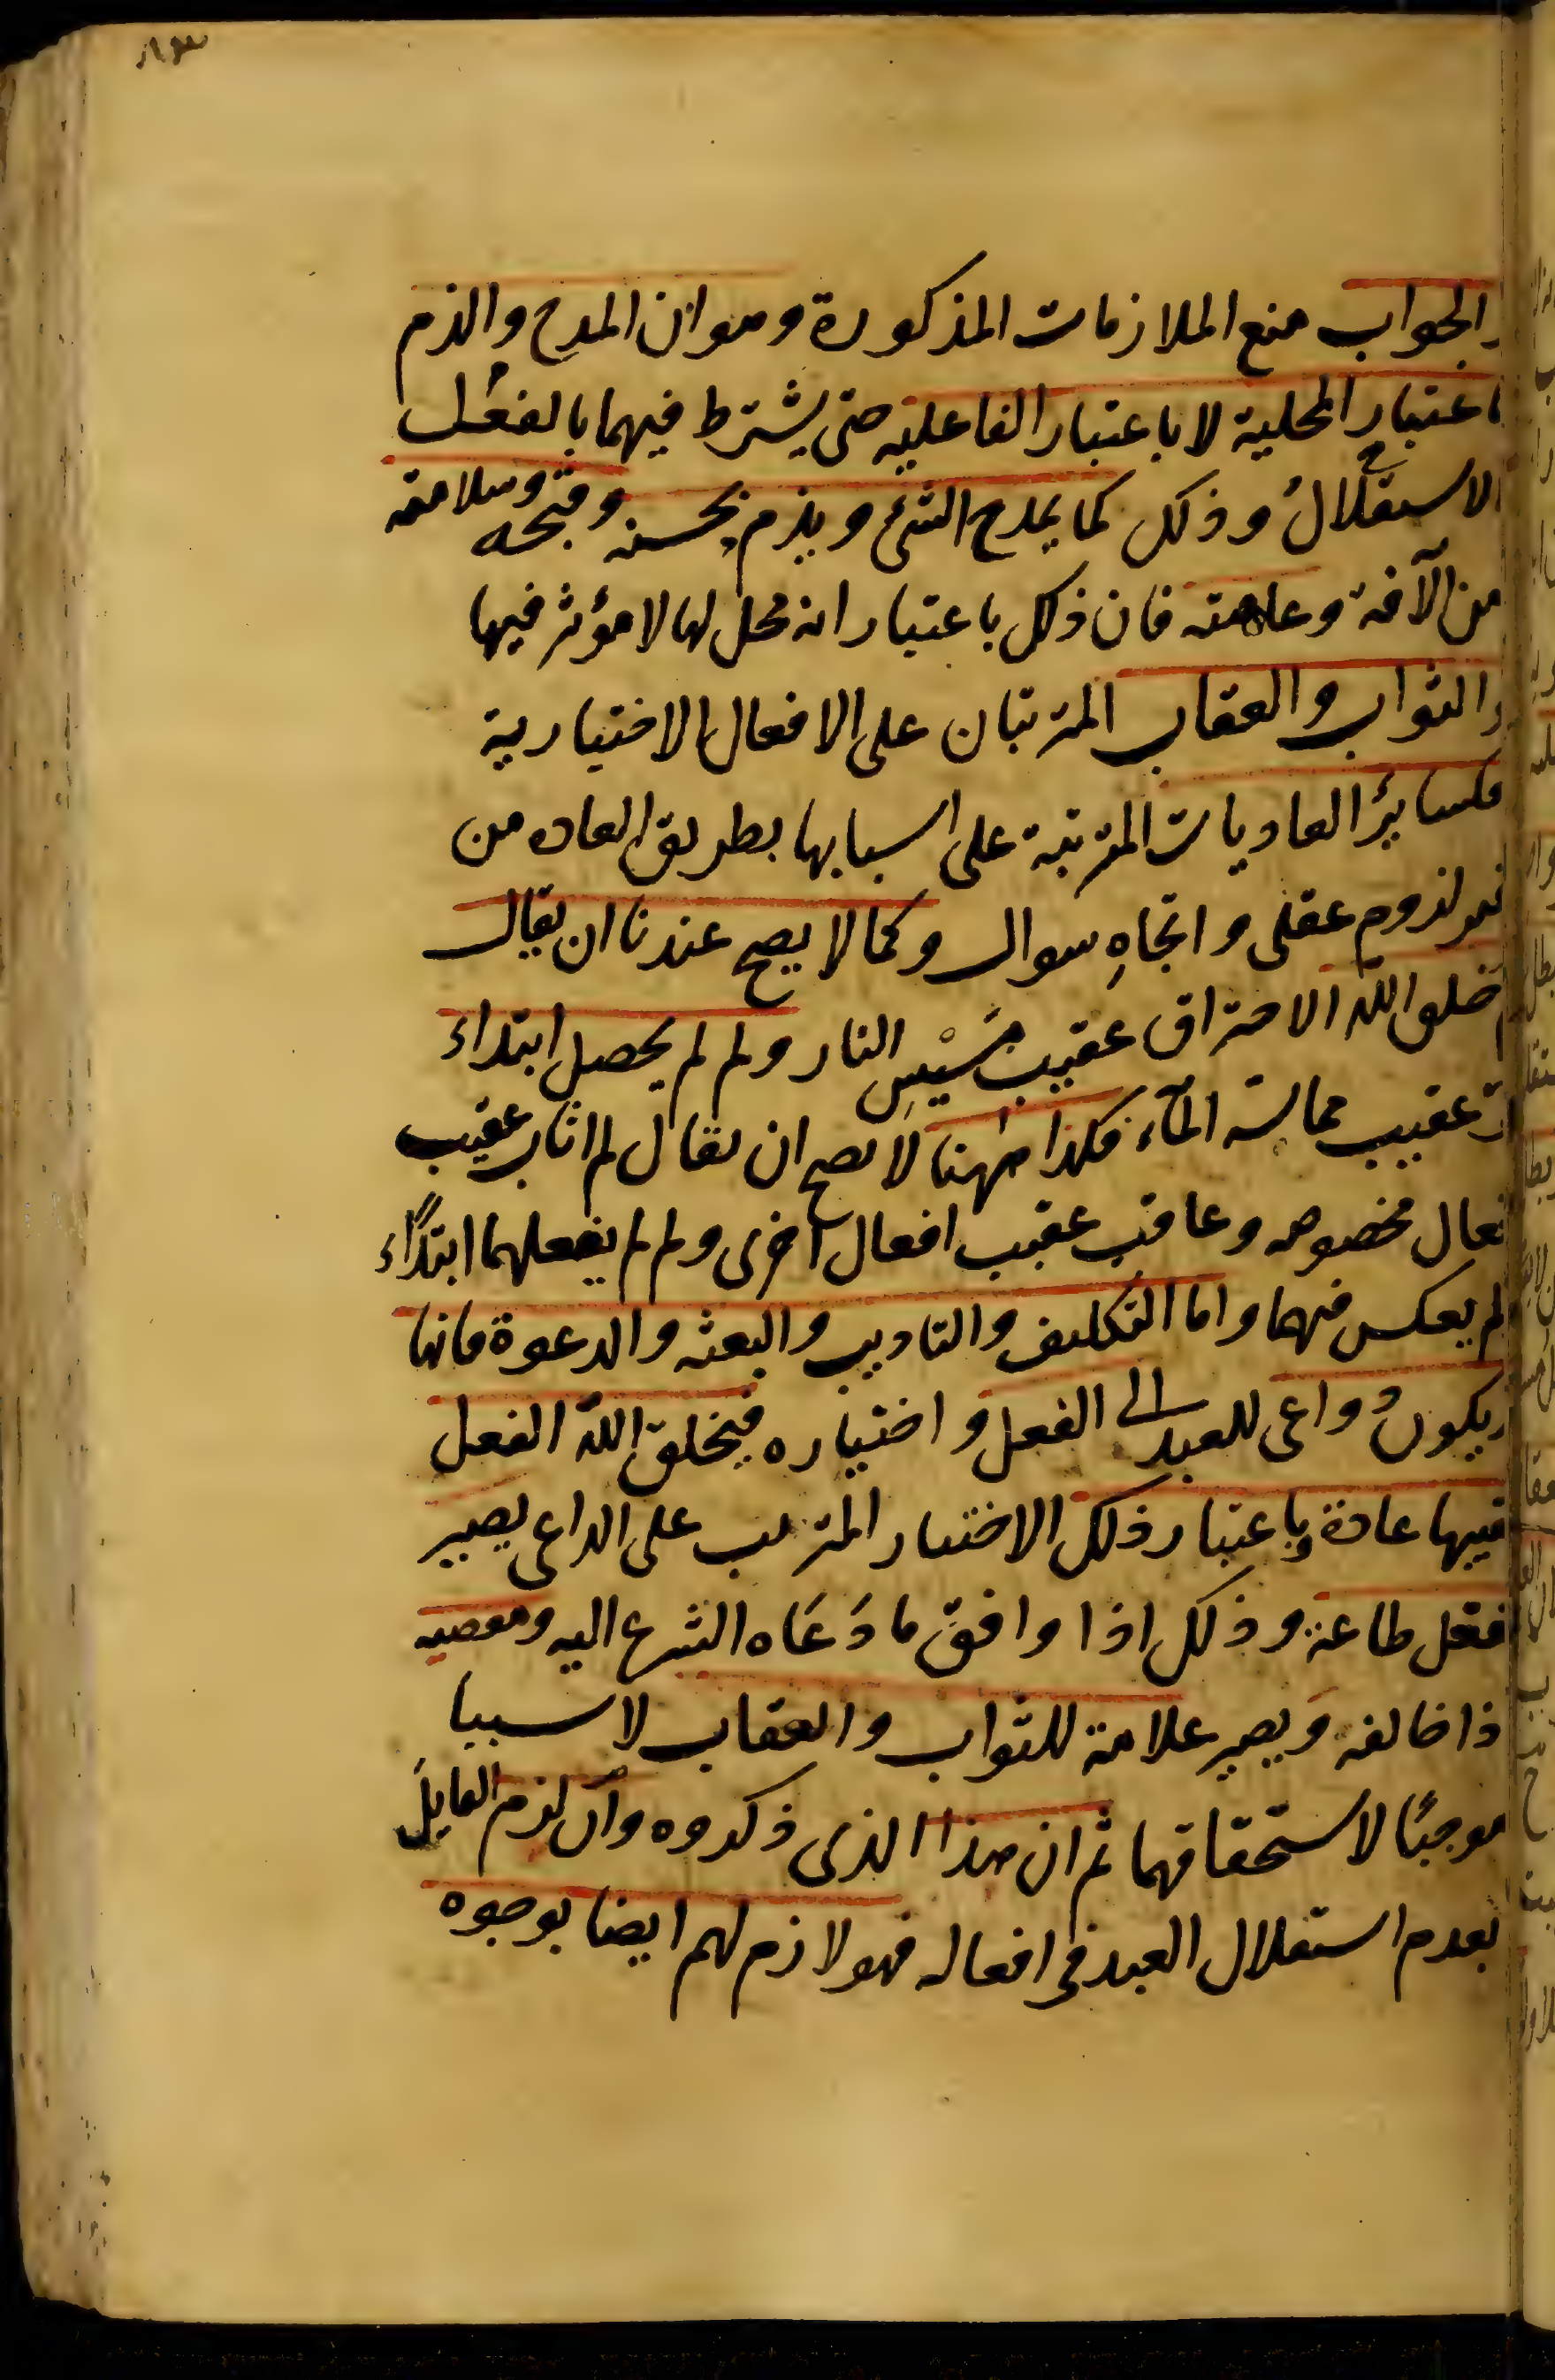 ٨٣
والجواب منع الملازمات المذكورة وهو ان المدح والذم
باعتبار المحلية لا باعتبار الفاعلية حتى يشترط فيهما بالفعل
الاستقلال وذلك كما يمدح الشئ ويذم بحسنه وقبحه وسلامته
من الآفة وعاهته فان ذلك باعتبار انه محل لها لا مؤثر فيها
والثواب والعقاب المترتبان على الافعال الاختيارية
فكسائر العاديات المترتبة على اسبابها بطريق العاده من
غير لزوم عقلى واتجاهِ سوال وكما لا يصح عندنا ان يقال
خلق الله الاحتراق عقيب مَسيْسِ النار ولم لم يحصل ابتداء
او عقيب مماسة المآء فكذا ههنا لا يصح ان يقال لم اثاب عقيب
افعال مخصوصه وعاقب عقيب افعال اخرى ولم لم يفعلهما ابتدًاء
ولم يعكس فيهما واما التكليف والتاديب والبعثه والدعوة فانها
قد يكون دواعى للعبد الى الفعل واختياره فيخلق الله الفعل
عقيبها عادة وباعتبار ذلك الاختيار المترتب على الداعى يصير
الفعل طاعة وذلك اذا وافق ما دَعَاه الشرع اليه ومعصيه
اذا خالفه وَيصير علامة للثواب والعقاب لا سببا
موجبًا لاستحقاقهما ثم ان هذا الذى ذكروه وان لزم القايل
بعدم استقلال العبد فى افعاله فهو لازم لهم ايضا بوجوه